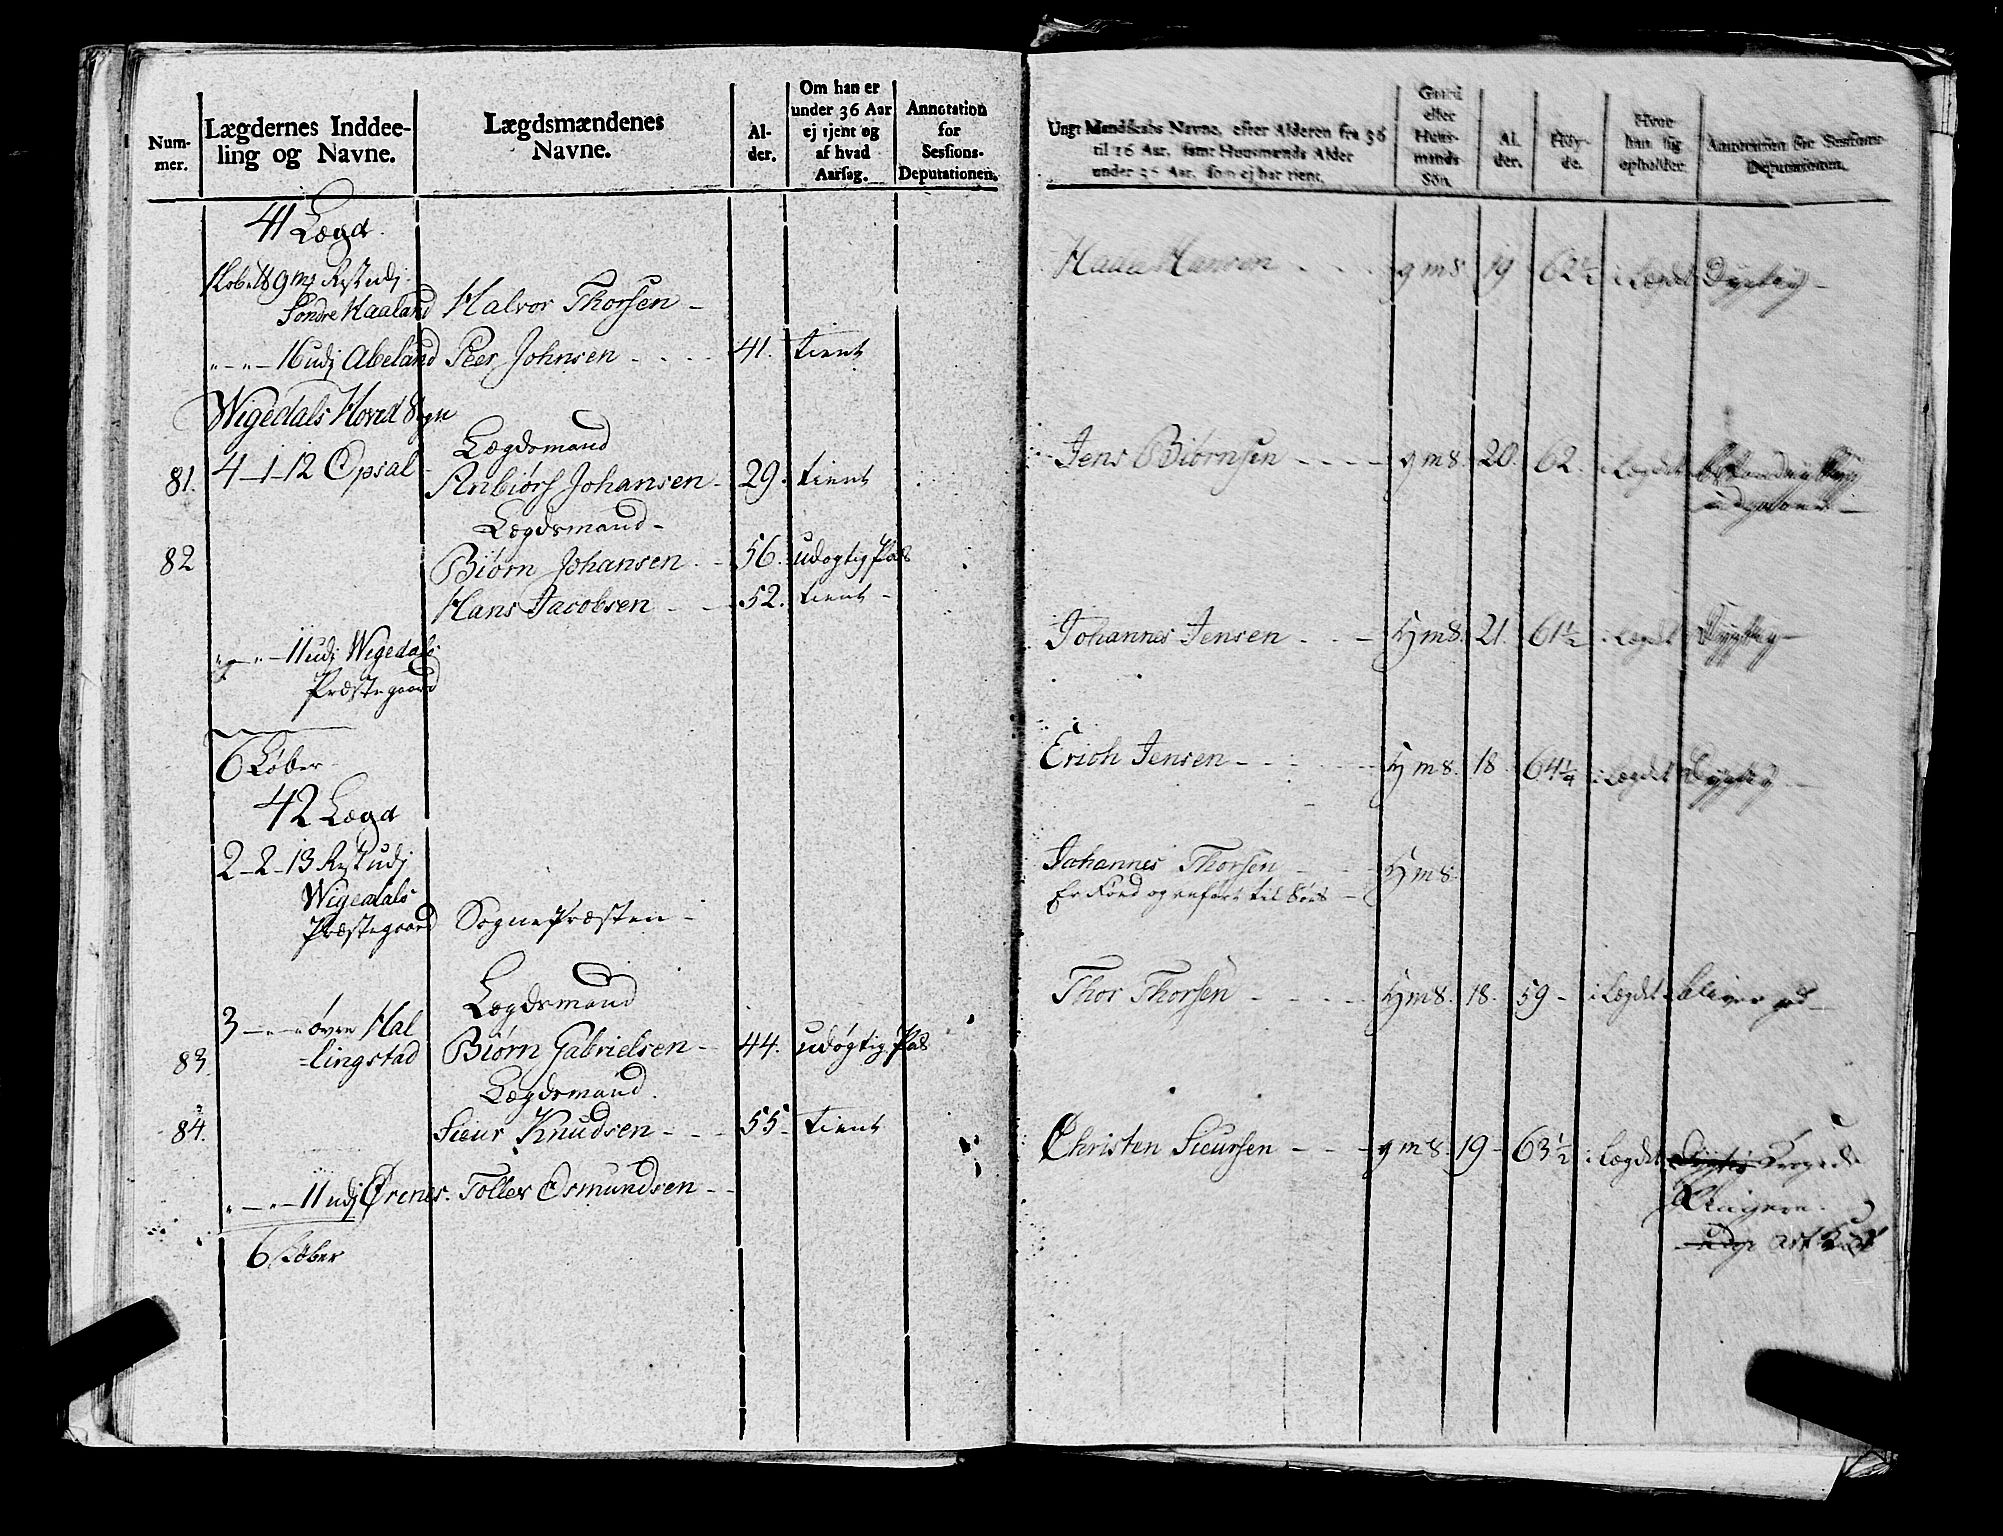 Num-
mer.
Lægdernes Inddee-
ling og Navne.
Lægdsmændenes
Navne.
Al-
der.
Om han er
under 36 Aar
ej tjent og
af hvad
Aarsag.
Annotation
for
Sessions-
Deputationen.
41 Lægd.
Rest udj
Søndre Haaland Halvor Thorsen -
" - " - 16 udj Abeland Peer Johnsen - 41. tient
Wigedals Hoved Sogn
Lægdsmand
81. 4-1-12 Opsal Anbiørs Johansen - 29. tient
Lægdsmand -
82 Biørn Johansen - 56. udøgtig Pas
Hans Jacobsen - 52. tient -
" - " - 11 udj Wigedals
Præstegaard
6 Køber -
42 Lægd
2-2-13 Rest udj
Wigedals
Præstegaard Sogne Præsten -
Lægdsmand
3 - " - " øvre Hal
83. -lingstad Biørn Gabrielsen - 44. udøgtig Pas
Lægdsmand.
84. Sieur Knudsen - 55. tient
" - " - 11 udj Ørenes. Tollev Osmundsen -
6 Køber
Ungt Mandskabs Navne, efter Alderen fra 36
til 16 Aar, samt Huusmænds Alder
under 36 Aar, som ej har tient.
Gaard
eller
Huus-
mands
Søn.
Al-
der.
Høy-
de.
Hvor
han sig
opholder.
Annotation for Sessions-
Deputationen.
Hansen - g m S. 19 62 1/2 i Lægdet Dygtig -
Jens Biørnsen - g m S. 20. 62. i Lægdet
Johannes Jensen - h m S. 21. 61 1/2 i Lægdet Dygtig -
Erich Jensen - h m S. 18. 64 1/4 i Lægdet Dygtig -
Johannes Thorsen - h m S.
Er Død og til
Thor Thorsen - h m S. 18. 59 - i Lægdet
Christen Sieursen - g m S. 19 - 63 1/2 i Lægdet Dygtig